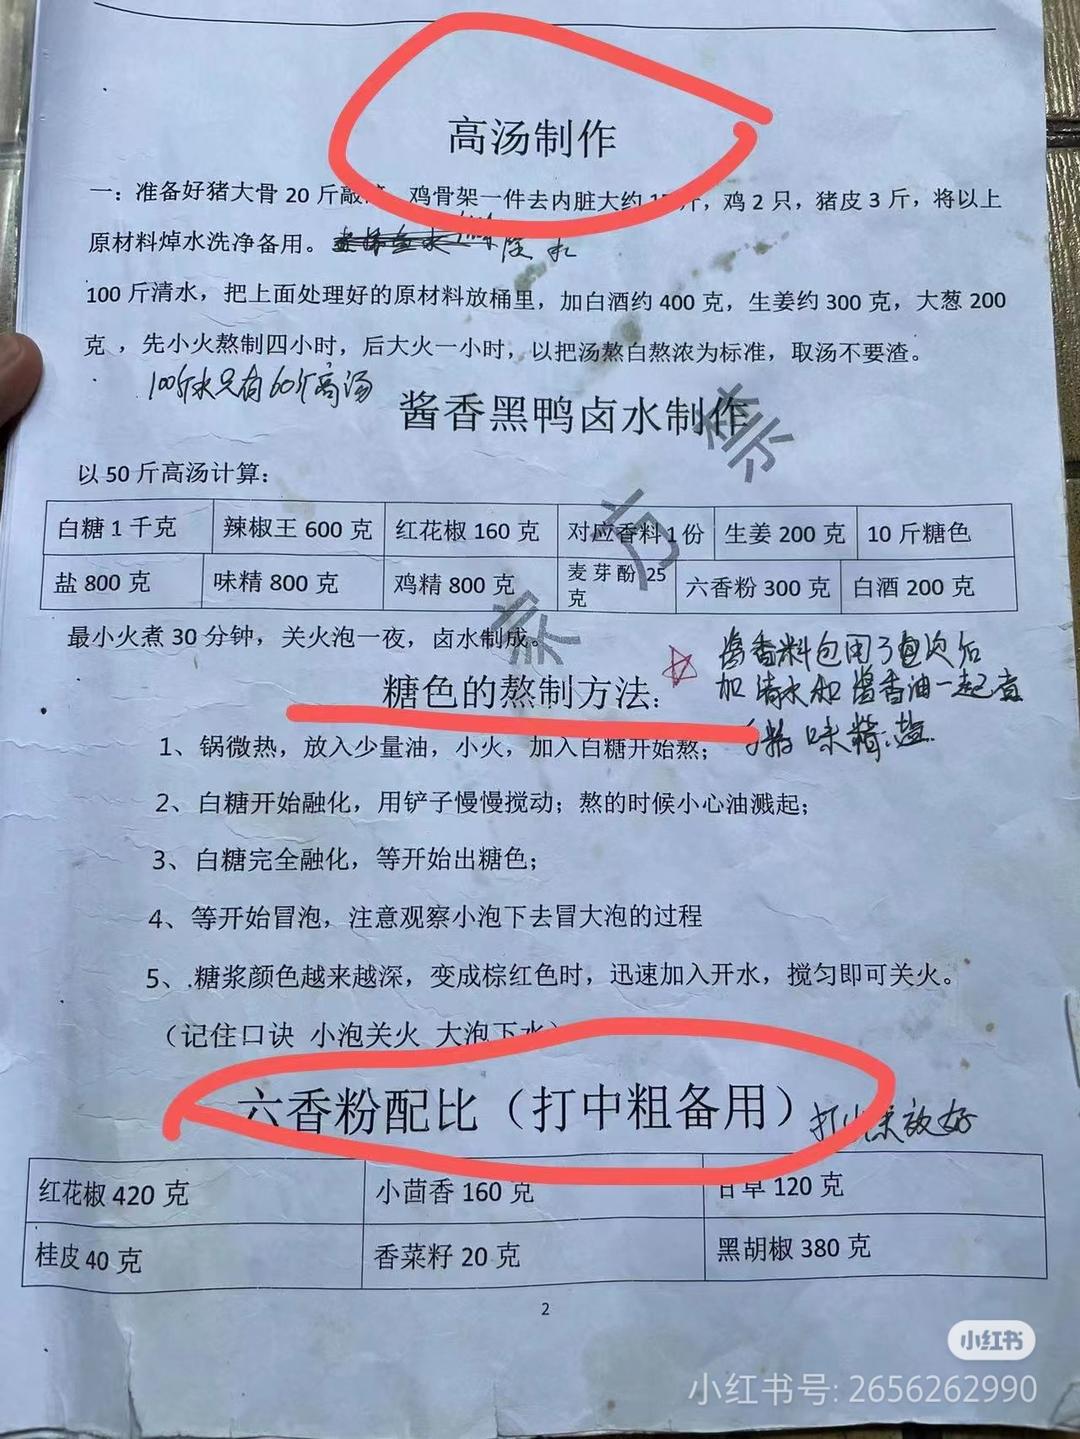 高汤制作
一：准备好猪大骨 20 斤敲 鸡骨架一件去内脏大约 斤，鸡 2 只，猪皮 3 斤，将以上
原材料焯水洗净备用。
100 斤清水，把上面处理好的原材料放桶里，加白酒约 400 克，生姜约 300 克，大葱 200
克 ，先小火熬制四小时，后大火一小时，以把汤熬白熬浓为标准，取汤不要渣。
100斤水只有60斤高汤
酱香黑鸭卤水制作
以 50 斤高汤计算：
白糖 1 千克 辣椒王 600 克 红花椒 160 克 对应香料 1 份 生姜 200 克 10 斤糖色
盐 800 克 味精 800 克 鸡精 800 克 麦芽酚 25 克 六香粉 300 克 白酒 200 克
最小火煮 30 分钟，关火泡一夜，卤水制成。
酱香料包用了 次后
加清水和酱香油一起煮
味精.盐.
糖色的熬制方法：
1、锅微热，放入少量油，小火，加入白糖开始熬；
2、白糖开始融化，用铲子慢慢搅动；熬的时候小心油溅起；
3、白糖完全融化，等开始出糖色；
4、等开始冒泡，注意观察小泡下去冒大泡的过程
5、.糖浆颜色越来越深，变成棕红色时，迅速加入开水，搅匀即可关火。
（记住口诀 小泡关火 大泡下水）
六香粉配比（打中粗备用）
放好
红花椒 420 克 小茴香 160 克 甘草 120 克
桂皮 40 克 香菜籽 20 克 黑胡椒 380 克
2
小红书
小红书号: 2656262990